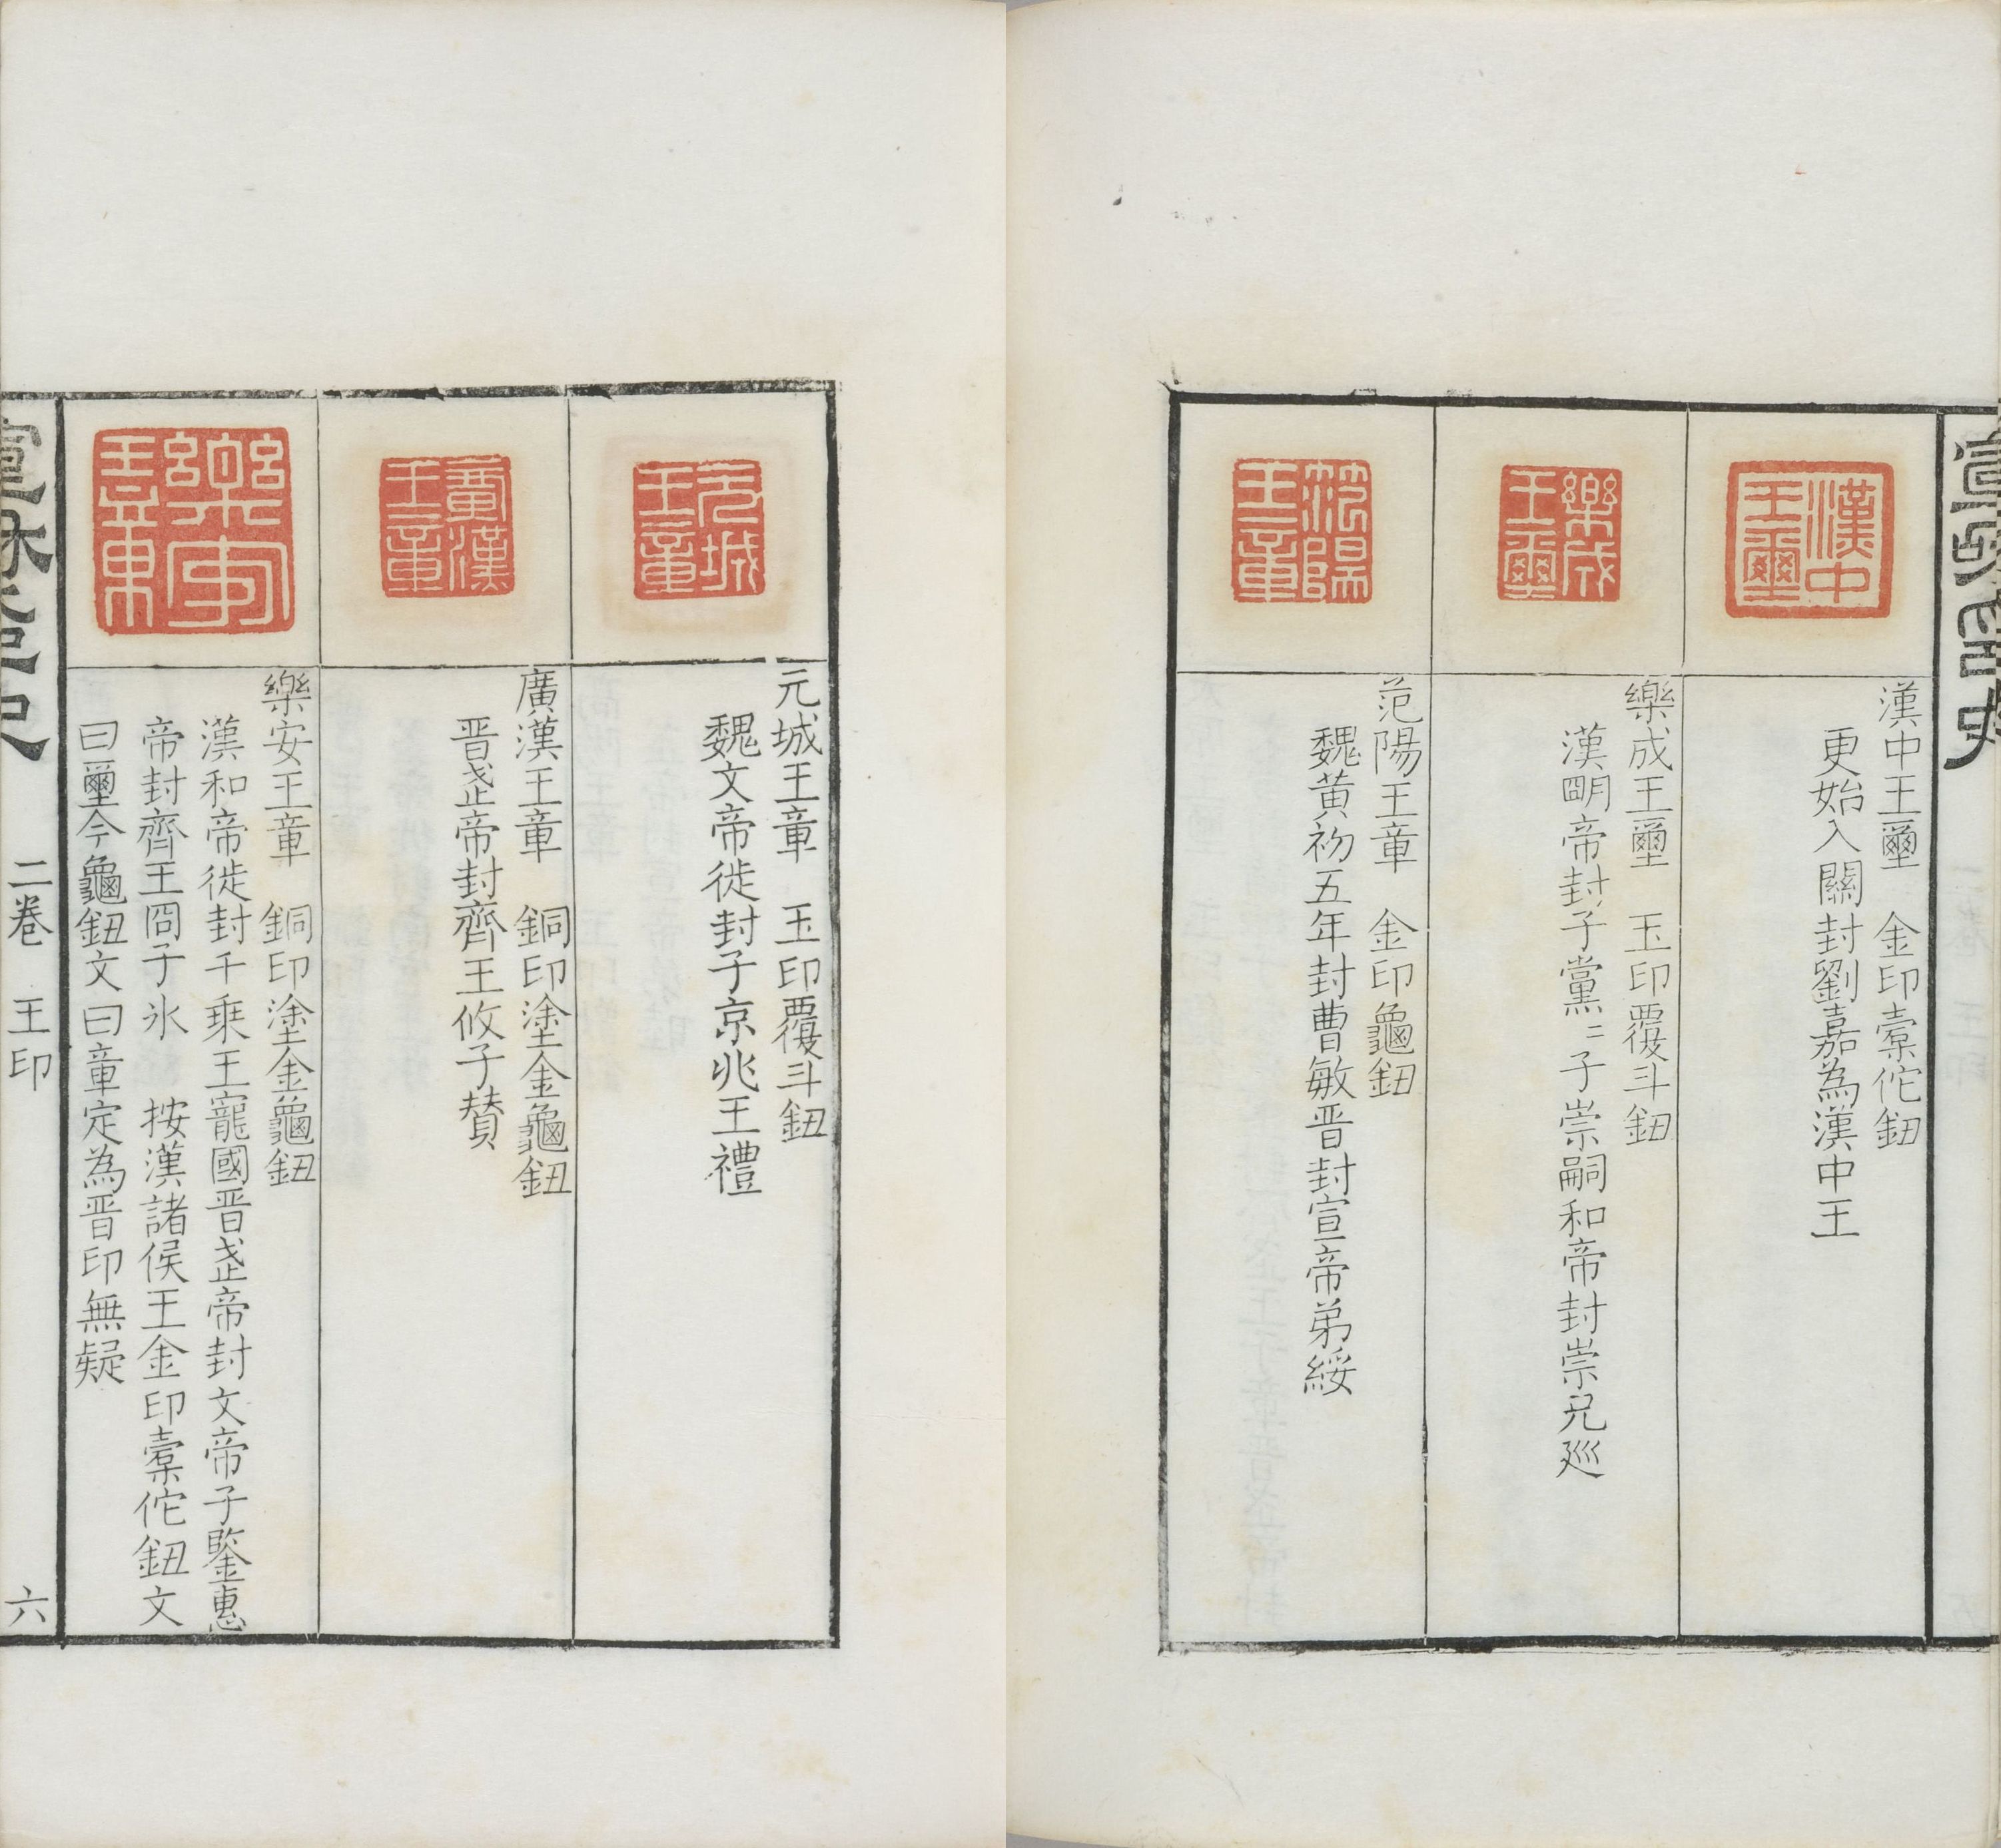 漢中王璽
漢中王璽　金印橐佗鈕
更始入關封劉嘉為漢中王
樂成王璽
樂成王璽　玉印覆斗鈕
漢朙帝封子黨〻子崇嗣和帝封崇兄巡
范陽王章
范陽王章　金印龜鈕
魏黃初五年封曹敏晋封宣帝弟綏
元城王章
元城王章　玉印覆斗鈕
魏文帝徙封子京兆王禮
廣漢王章
廣漢王章　銅印塗金龜鈕
晋武帝封齊王攸子賛
樂安王章
樂安王章　銅印塗金龜鈕
漢和帝徙封千乗王寵國晋武帝封文帝子鑒惠
帝封齊王冏子氷　按漢諸侯王金印橐佗鈕文
曰璽今龜鈕文曰章定為晋印無疑
二卷　王印　六